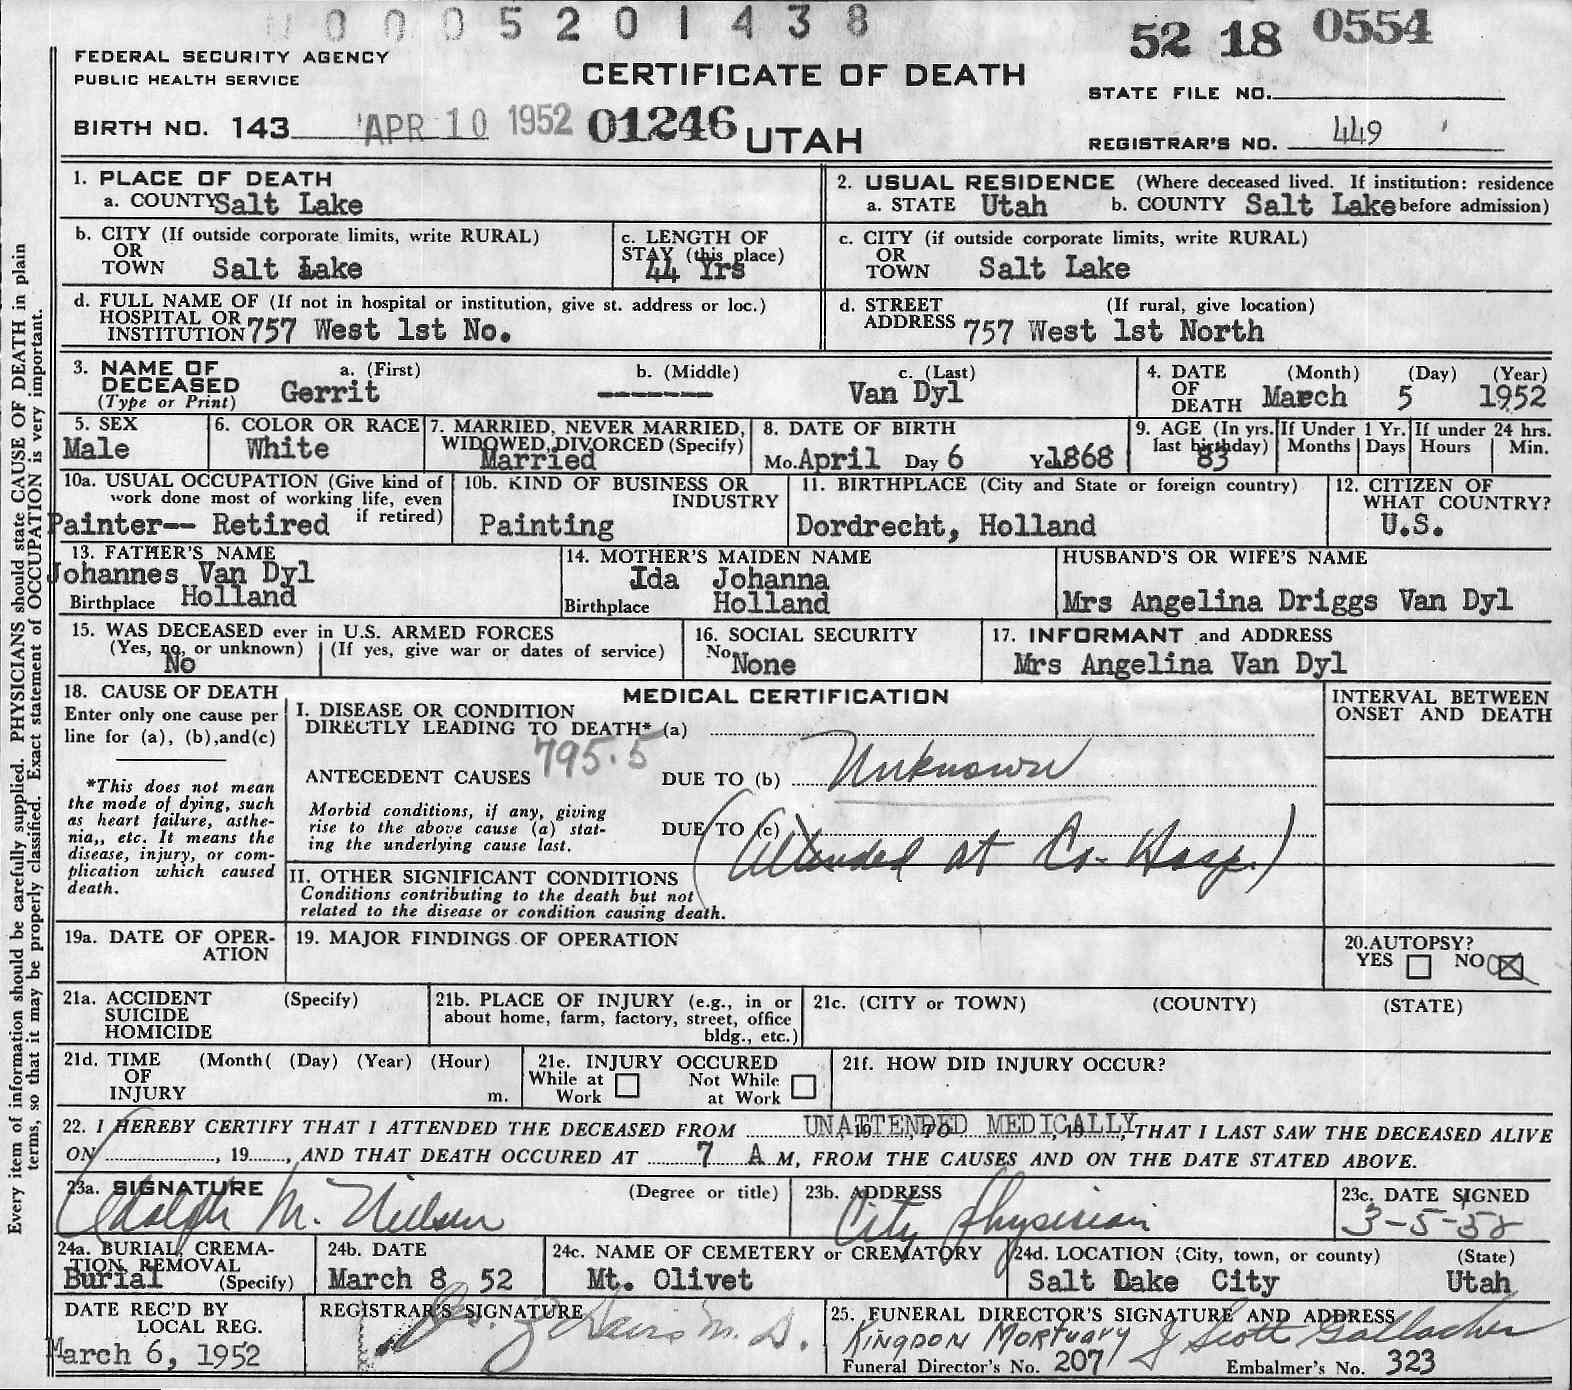 0 0 0 5 2 0 1 4 3 8
52 18 0554
FEDERAL SECURITY AGENCY
PUBLIC HEALTH SERVICE
CERTIFICATE OF DEATH
STATE FILE NO.
BIRTH NO. 143 APR 10 1952 01246 UTAH
REGISTRAR'S NO. 449
1. PLACE OF DEATH
a. COUNTY Salt Lake
2. USUAL RESIDENCE (Where deceased lived. If institution: residence
a. STATE Utah b. COUNTY Salt Lake before admission)
b. CITY (If outside corporate limits, write RURAL)
OR
TOWN Salt Lake
c. LENGTH OF
STAY (this place)
44 Yrs
c. CITY (if outside corporate limits, write RURAL)
OR
TOWN Salt Lake
d. FULL NAME OF (If not in hospital or institution, give st. address or loc.)
HOSPITAL OR
INSTITUTION 757 West 1st No.
d. STREET (If rural, give location)
ADDRESS 757 West 1st North
3. NAME OF a. (First) b. (Middle) c. (Last)
DECEASED Gerrit ---- Van Dyl
(Type or Print)
4. DATE (Month) (Day) (Year)
OF
DEATH March 5 1952
5. SEX
Male
6. COLOR OR RACE
White
7. MARRIED, NEVER MARRIED,
WIDOWED, DIVORCED (Specify)
Married
8. DATE OF BIRTH
Mo. April Day 6 Year 1868
9. AGE (In yrs.
last birthday)
83
If Under 1 Yr.
Months Days
If under 24 hrs.
Hours Min.
10a. USUAL OCCUPATION (Give kind of
work done most of working life, even
if retired)
Painter-- Retired
10b. KIND OF BUSINESS OR
INDUSTRY
Painting
11. BIRTHPLACE (City and State or foreign country)
Dordrecht, Holland
12. CITIZEN OF
WHAT COUNTRY?
U.S.
13. FATHER'S NAME
Johannes Van Dyl
Birthplace Holland
14. MOTHER'S MAIDEN NAME
Ida Johanna
Birthplace Holland
HUSBAND'S OR WIFE'S NAME
Mrs Angelina Driggs Van Dyl
15. WAS DECEASED ever in U.S. ARMED FORCES
(Yes, no, or unknown) (If yes, give war or dates of service)
No
16. SOCIAL SECURITY
No. None
17. INFORMANT and ADDRESS
Mrs Angelina Van Dyl
18. CAUSE OF DEATH
Enter only one cause per
line for (a), (b),and(c)
*This does not mean
the mode of dying, such
as heart failure, asthe-
nia,, etc. It means the
disease, injury, or com-
plication which caused
death.
MEDICAL CERTIFICATION
I. DISEASE OR CONDITION
DIRECTLY LEADING TO DEATH* (a)
795.5
ANTECEDENT CAUSES DUE TO (b) Unknown
Morbid conditions, if any, giving
rise to the above cause (a) stat-
ing the underlying cause last.
DUE TO (c)
(Attended at Co- Hosp.)
II. OTHER SIGNIFICANT CONDITIONS
Conditions contributing to the death but not
related to the disease or condition causing death.
INTERVAL BETWEEN
ONSET AND DEATH
19a. DATE OF OPER-
ATION
19. MAJOR FINDINGS OF OPERATION
20.AUTOPSY?
YES NO
21a. ACCIDENT (Specify)
SUICIDE
HOMICIDE
21b. PLACE OF INJURY (e.g., in or
about home, farm, factory, street, office
bldg., etc.)
21c. (CITY or TOWN) (COUNTY) (STATE)
21d. TIME (Month( (Day) (Year) (Hour)
OF
INJURY m.
21e. INJURY OCCURED
While at Work Not While at Work
21f. HOW DID INJURY OCCUR?
22. I HEREBY CERTIFY THAT I ATTENDED THE DECEASED FROM UNATTENDED MEDICALLY, THAT I LAST SAW THE DECEASED ALIVE
ON, 19, AND THAT DEATH OCCURED AT 7 A M, FROM THE CAUSES AND ON THE DATE STATED ABOVE.
23a. SIGNATURE (Degree or title)
Adolph M. Nielsen
23b. ADDRESS
City Physician
23c. DATE SIGNED
3-5-52
24a. BURIAL, CREMA-
TION, REMOVAL
Burial (Specify)
24b. DATE
March 8 52
24c. NAME OF CEMETERY or CREMATORY
Mt. Olivet
24d. LOCATION (City, town, or county) (State)
Salt Lake City Utah
DATE REC'D BY
LOCAL REG.
March 6, 1952
REGISTRAR'S SIGNATURE
M. D.
25. FUNERAL DIRECTOR'S SIGNATURE AND ADDRESS
Kingdon Mortuary J Scott Gallacher
Funeral Director's No. 207 Embalmer's No. 323
Every item of information should be carefully supplied. PHYSICIANS should state CAUSE OF DEATH in plain
terms, so that it may be properly classified. Exact statement of OCCUPATION is very important.